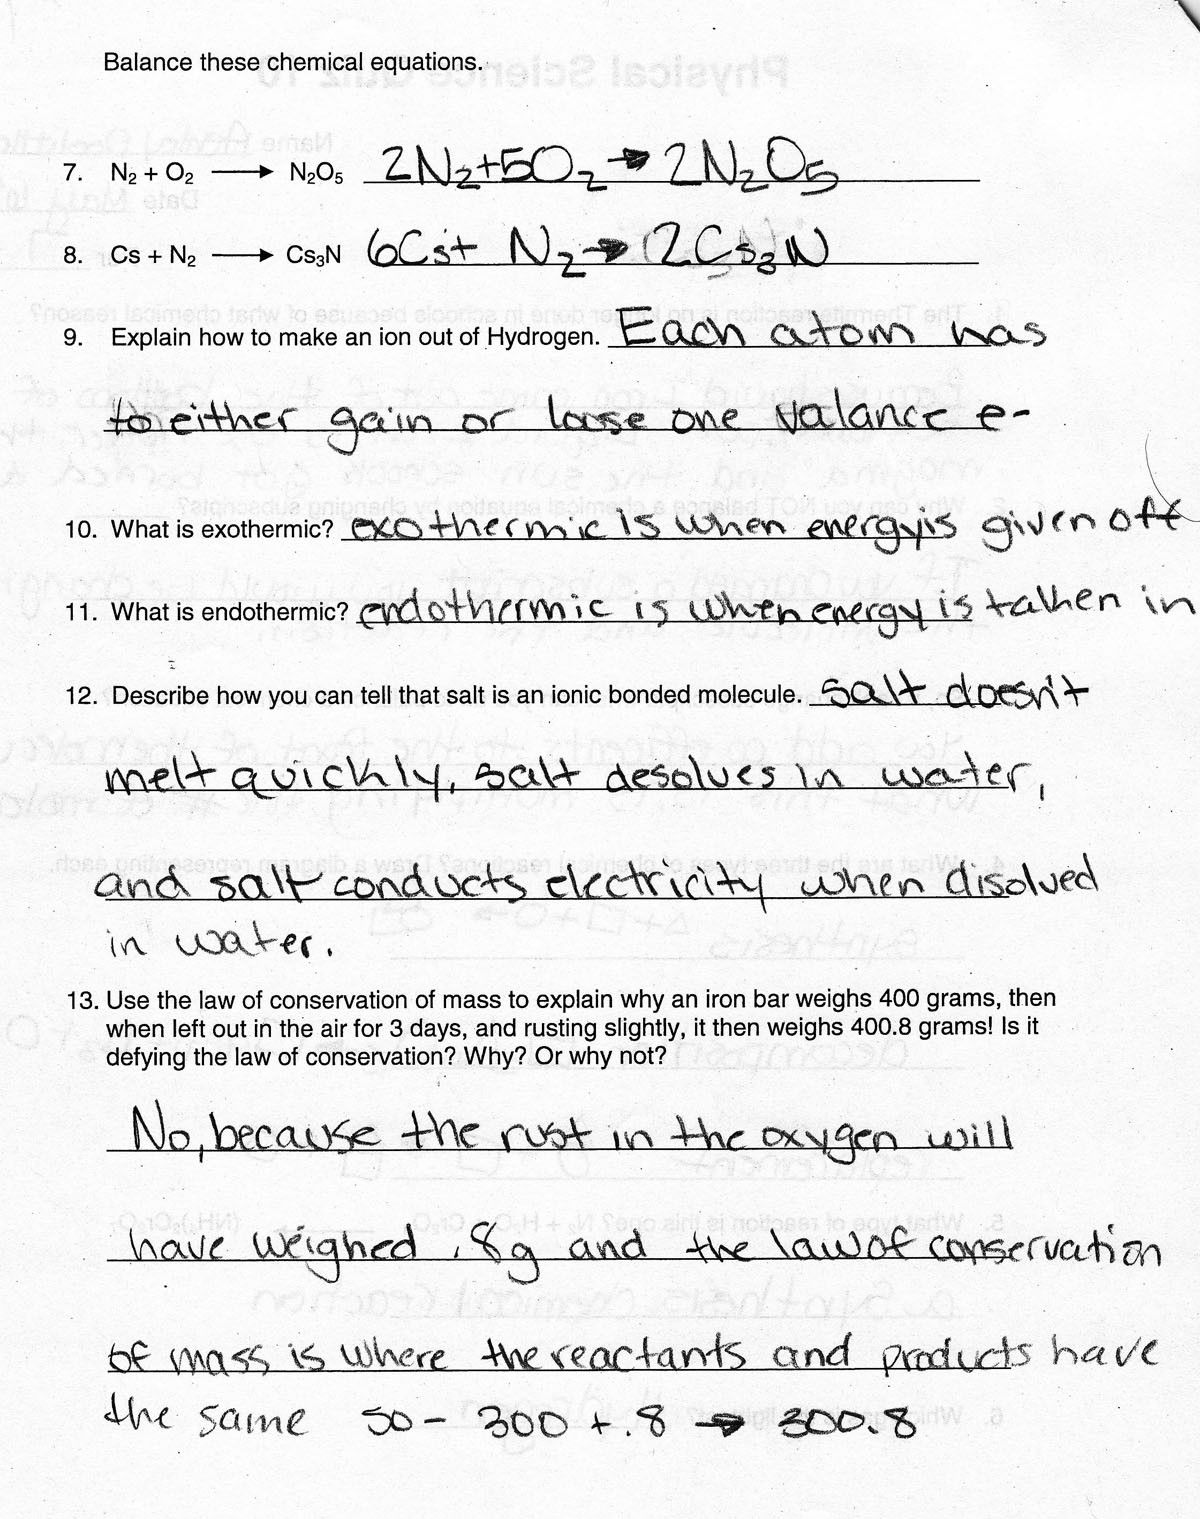 Balance these chemical equations.
7. N₂ + O₂ ⟶ N₂O₅ 2N₂+5O₂ → 2N₂O₅
8. Cs + N₂ ⟶ Cs₃N 6Cs+ N₂ → 2Cs₃N
9. Explain how to make an ion out of Hydrogen. Each atom has
to either gain or loose one valance e-
10. What is exothermic? exothermic is when energy is given off
11. What is endothermic? endothermic is when energy is takhen in
12. Describe how you can tell that salt is an ionic bonded molecule. salt doesn't
melt quickly, salt desolves in water,
and salt conducts electricity when disolved
in water.
13. Use the law of conservation of mass to explain why an iron bar weighs 400 grams, then
when left out in the air for 3 days, and rusting slightly, it then weighs 400.8 grams! Is it
defying the law of conservation? Why? Or why not?
No, because the rust in the oxygen will
have weighed .8g and the law of conservation
of mass is where the reactants and products have
the same so - 300 + .8 → 300.8